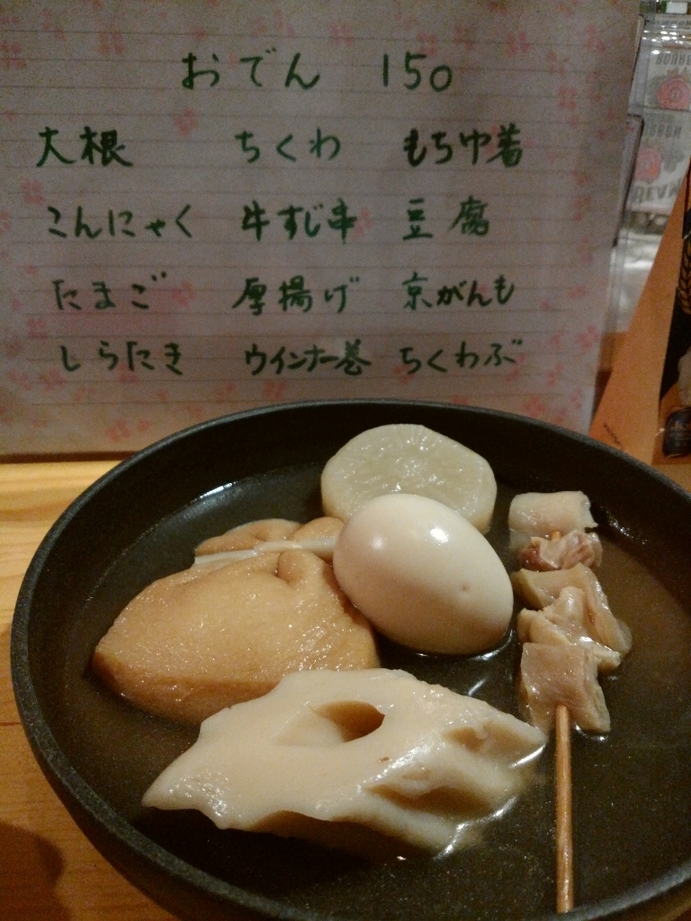 おでん 150
大根 ちくわ もちゆ着
こんにゃく 牛すじ串 豆腐
たまご 厚揚げ 京がんも
しらたき ウインナー巻 ちくわぶ